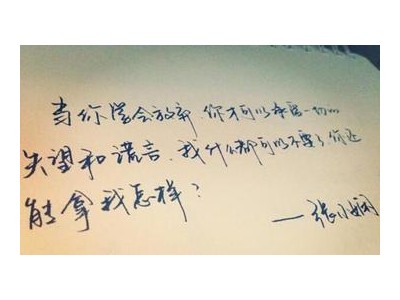 当你学会放弃、你才可以承受一切的
失望和谎言、我什么都可以不要了、你还
能拿我怎样?
——张小娴